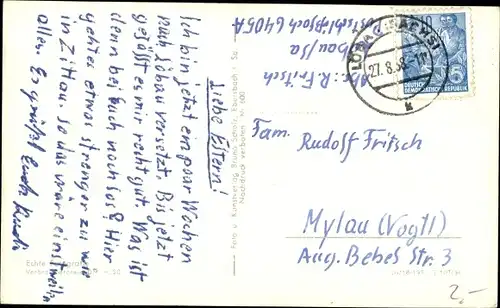 Liebe Eltern!
Ich bin jetzt ein paar Wochen
nach Löbau versetzt. Bis jetzt
gefällt es mir recht gut. Was ist
denn bei euch noch so? Hier
geht es etwas strenger zu wie
in Zittau. so das wäre einstweilen
alles. Es grüßt Euch
Echte
Foto u. Kunstverlag Bruno Scholz, Ebersbach i. Sa
Nachdruck verboten
Abs.: R. Fritsch
Löbau/Sa
Postschl. Pfach 6405A
LÖBAU (SACHS)
27.8.58
10
DEUTSCHE
DEMOKRATISCHE REPUBLIK
Fam.
Rudolf Fritsch
Mylau (Vogtl)
Aug. Bebel Str. 3
2.-